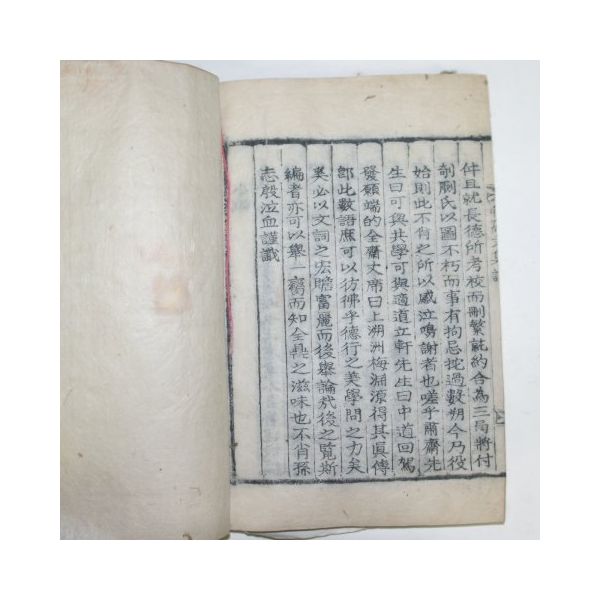 件且就長德所考校而刪繁就約合為三局將付
剞劂氏以圖不朽而事有拘忌拕過數朔今乃役
始則此不肖之所以感泣鳴謝者也嗟乎爾齋先
生曰可與共學可與適道立軒先生曰中道回駕
發願端的全齋丈席曰上溯洲梅淵源得其眞傳
郎此數語庶可以彷彿乎德行之美學問之力矣
奚必以文詞之宏贍富麗而後擧論哉後之覽斯
編者亦可以擧一臠而知全鼎之滋味也不肖孫
志殷泣血謹識